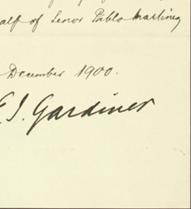 alf of Senor Pablo Martinez
December 1900.
E. J. Gardiner